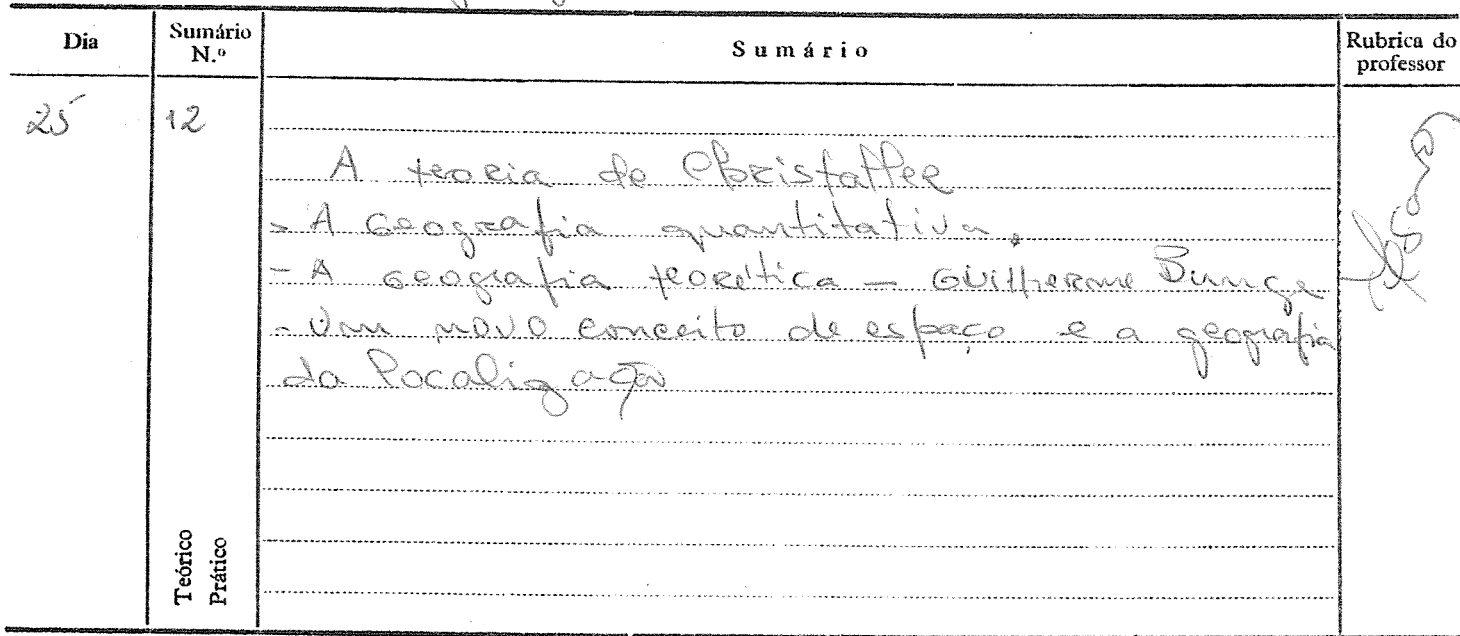 Dia
Sumário N.º
Sumário
Rubrica do professor
25
12
A teoria de Christaller
- A Geografia quantitativa.
- A geografia teorética - Guilherme Bunge
- Um novo conceito de espaço e a geografia
da localização
Teórico
Prático